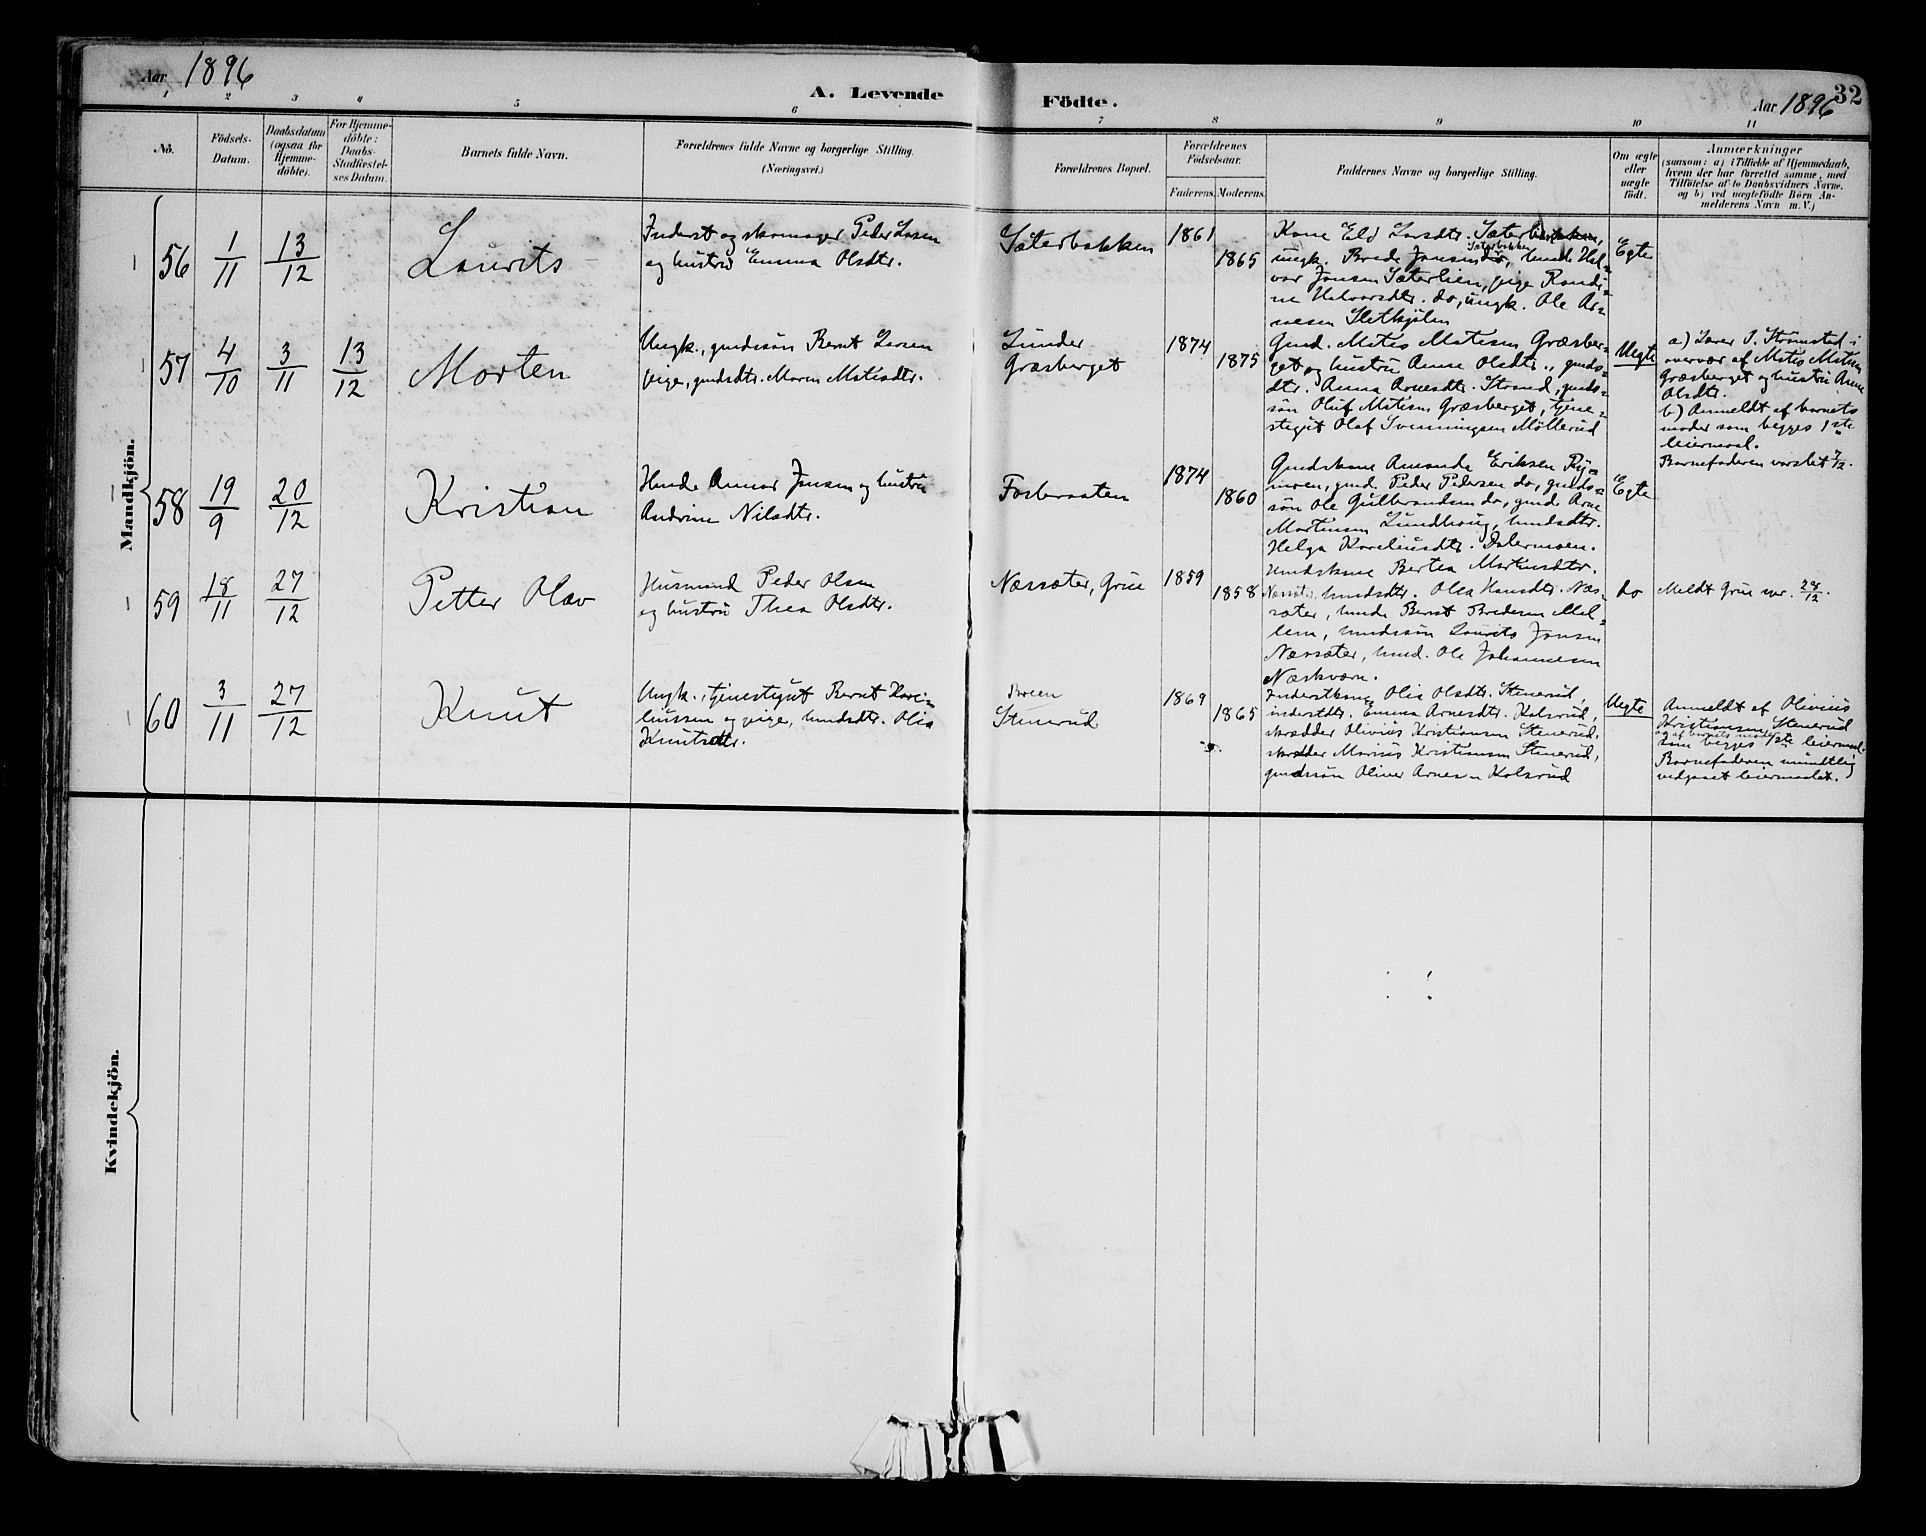 Aar 1896
A. Levende Födte.
Aar 1896
32
1 2 3 4 5 6 7 8 9 10 11
No.
Födsels-Datum.
Daabsdatum (ogsaa for Hjemme-döbte).
For Hjemme-döbte: Daabs-Stadfæstel-ses Datum.
Barnets fulde Navn.
Forældrenes fulde Navne og borgerlige Stilling.
(Næringsvei.)
Forældrenes Bopæl.
Forældrenes Födselsaar.
Faderens. Moderens.
Faddernes Navne og borgerlige Stilling.
Om ægte eller uægte födt.
Anmærkninger
(saasom: a) i Tilfælde af Hjemmedaab,
hvem der har forrettet samme, med
Tilföielse af to Daabsvidners Navne,
og b) ved uægtefödte Börn An-
melderens Navn m. V.)
Mandkjön.
56 1/11 13/12 Laurits
Inderst og skomager Peder Larsen
og hustru Emma Olsdtr.
Sæterbakken
1861
1865
Kone Eld Larsdtr. Sæterbakken,
Sæterbakken
ungk. Brede Jonsen do, husmd. Hal-
vor Jonsen Sæterlien, pige Randi-
ne Halvorsdtr. do, ungk. Ole Ar-
nesen Sletkjølen
Egte
57 4/10 3/11 13/12 Morten
Ungk., gmdssön Bernt Larsen
pige, gmdsdtr. Maren Matisdtr.
Lunder
Græsberget
1874
1875
Gmd. Matis Matisen Græsber-
get og hustru Anne Olsdtr., gmds-
dtr. Anna Arnesdtr. Strand, gmds-
sön Oluf Matisen Græsberget, tjene-
stegut Olaf Svenningsen Möllerud
Uegte
a) Lærer I. Strömsted i
overvær af Matis Matisen
Græsberget og hustru Anne
Olsdtr.
b) Anmeldt af barnets
moder som begges 1ste
leiermaal.
Barnefaderen varslet 7/12.
58 19/9 20/12 Kristian
Husmd. Annar Jensen og hustru
Andrine Nilsdtr.
Fosberaaten
1874
1860
Gmdskone Amanda Eriksen Ry-
moen, gmd. Peder Pedersen do, gmds-
sön Ole Gulbrandsen do, gmd. Arne
Martinsen Lundhaug, husmdsdtr.
Helga Kareliusdtr. Dalermoen.
Egte
59 18/11 27/12 Petter Olav
Husmand Peder Olsen
og hustru Thea Olsdtr.
Næssæter, Grue
1859
1858
Husmdskone Bertea Martinsdtr.
Næssæter, husmdsdtr. Olea Hansdtr. Næs-
sæter, husmd. Bernt Bredesen Mel-
lem, husmdssön Laurits Jonsen
Næssæter, husmd. Ole Johannesen
Næskværn.
do
Meldt Grue spr. 28/12.
60 3/11 27/12 Knut
Ungk., tjenestegut Bernt Kare-
liussen og pige, husmdsdtr. Olia
Knutsdtr.
Breen
Stenerud
1869
1865
Inderstkone Olia Olsdtr. Stenerud,
inderstdtr. Emma Arnesdtr. Kolsrud,
skrædder Olivius Kristiansen Stenerud,
skrædder Marius Kristiansen Stenerud,
gmdssön Oliver Arnesen Kolsrud
Uegte
Anmeldt af Olivius
Kristiansen Stenerud
og af barnets moder
som begges 1ste leiermaal.
Barnefaderen mundtlig
vedgaaet leiermaalet.
Kvindekjön.